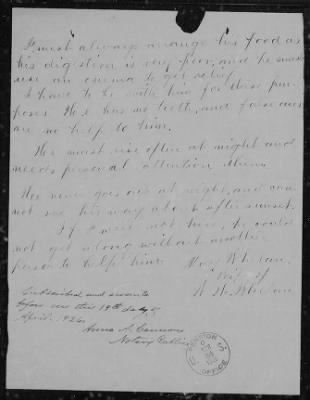 I must always arrange his food as
his digestion is very poor, and he must
use an enema to get relief.
I have to be with him for these pur-
poses. He has no teeth, and false ones
are no help to him.
He must rise often at night and
needs personal attention then.
He never goes out at night, and can
not see his way about after sunset.
If I were not here, he could
not get along without another
person to help him.
Mary Whelan.
Wife of
W. W. Whelan
Subscribed and sworn to
before me this 19th day of
April. 1926.
Anna A.
Notary Public
OFFICE